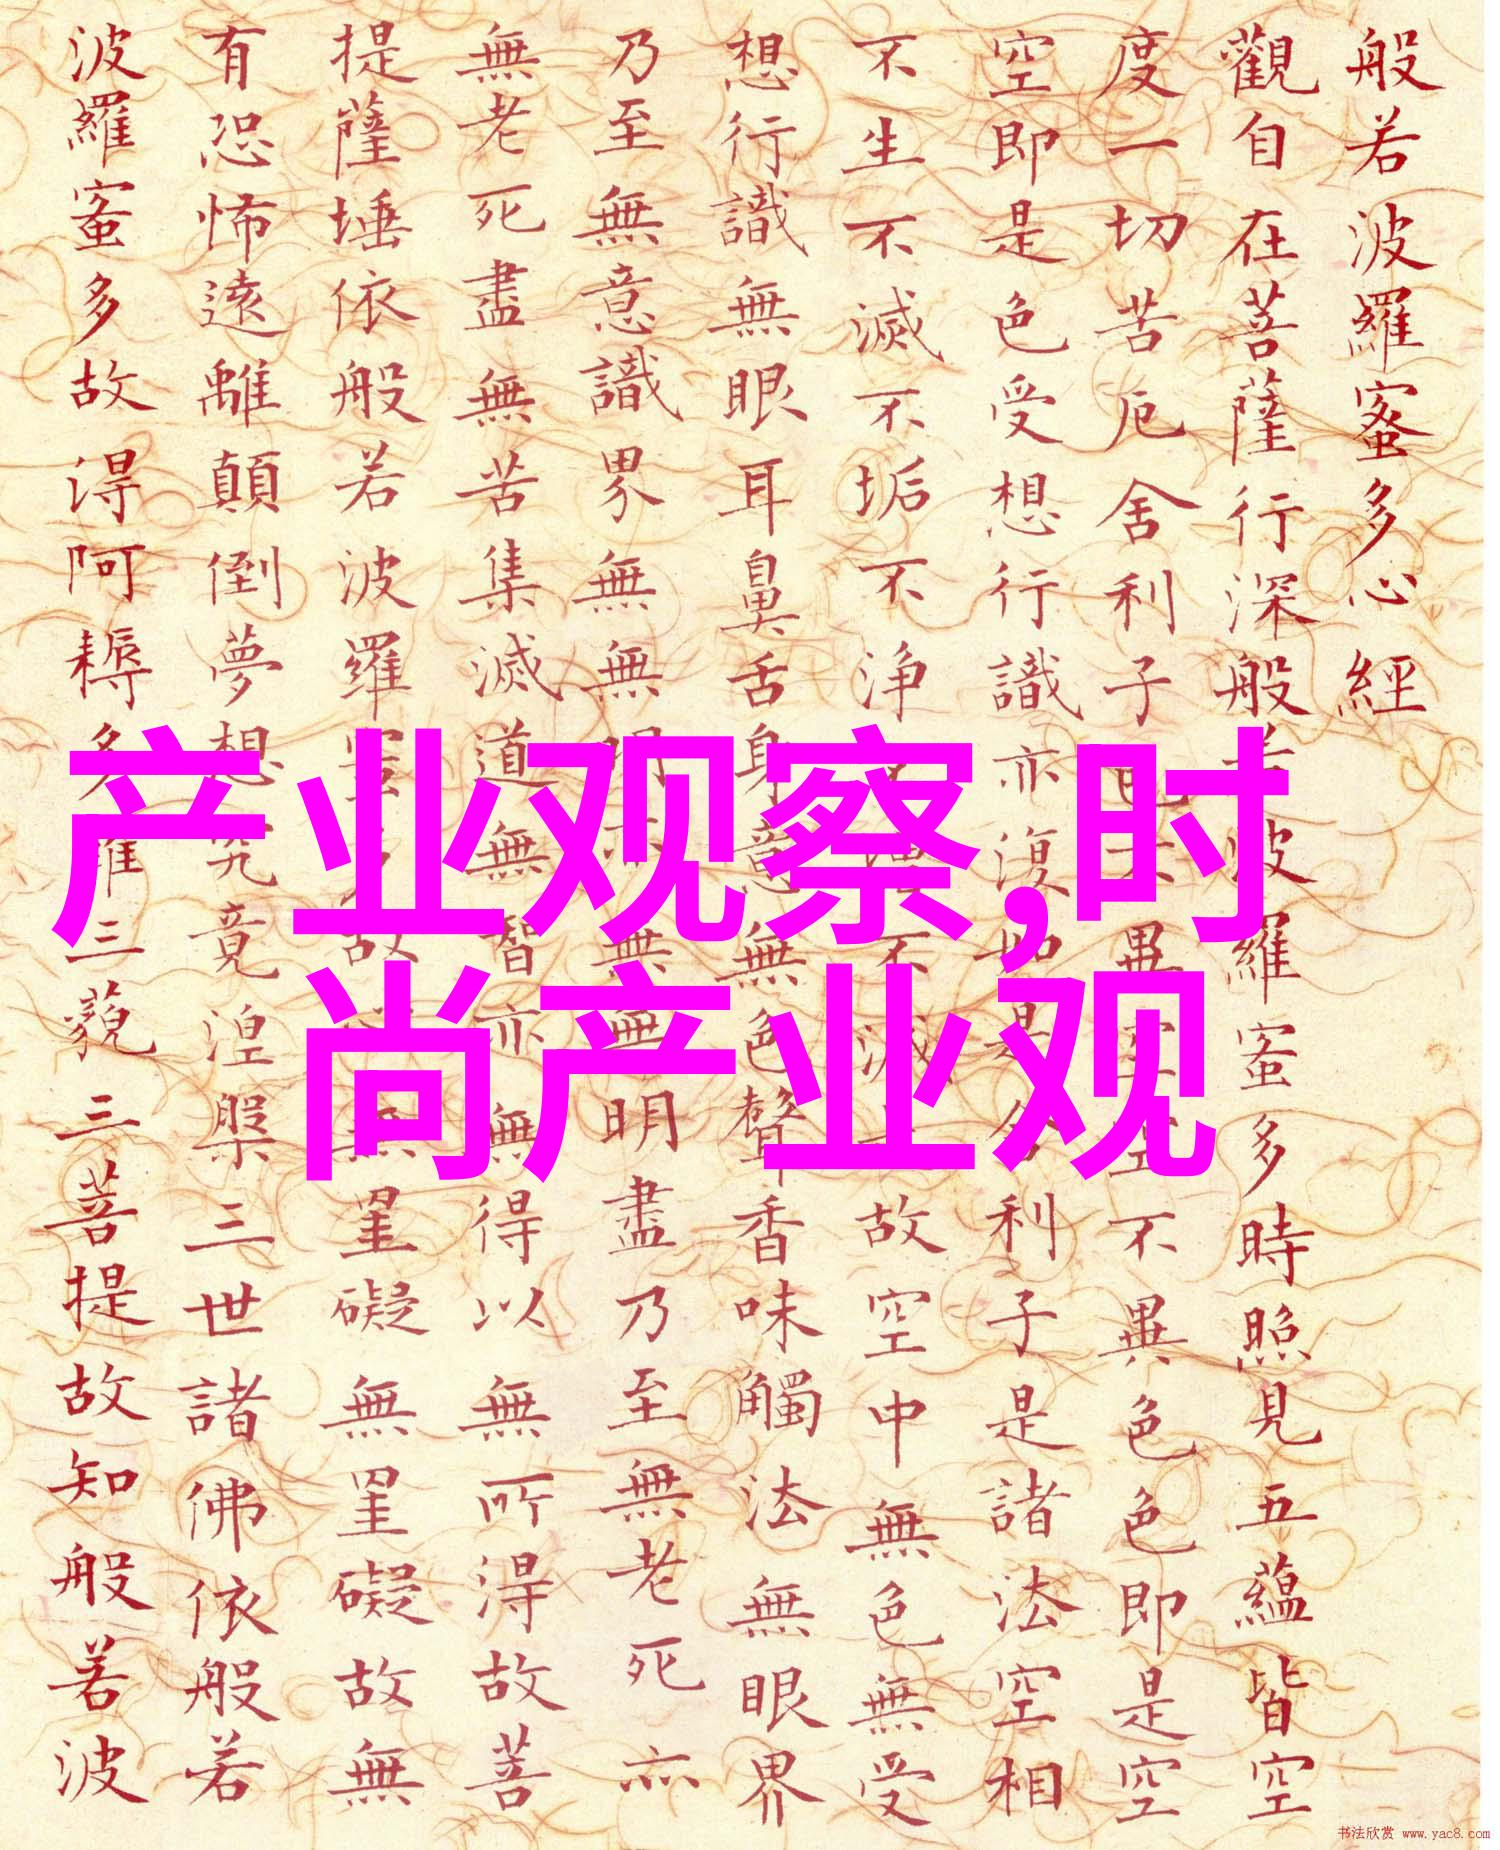 般若波羅蜜多心經
觀自在菩薩行深般若波羅蜜多時照見五蘊皆空
度一切苦厄舍利子色不異空空不異色色即是空
空即是色受想行識亦復如是舍利子是諸法空相
不生不滅不垢不浄不增不減是故空中無色無受
想行識無眼耳鼻舌身意無色聲香味觸法無眼界
乃至無意識界無無明亦無無明盡乃至無老死亦
無老死盡無苦集滅道無智亦無得以無所得故菩
提薩埵依般若波羅蜜多故心無罣礙無罣礙故無
有恐怖遠離顛倒夢想究竟涅槃三世諸佛依般若
波羅蜜多故得阿耨多羅三藐三菩提故知般若波
产业观察,时
尚产业观
书法欣赏 www.yac8.com